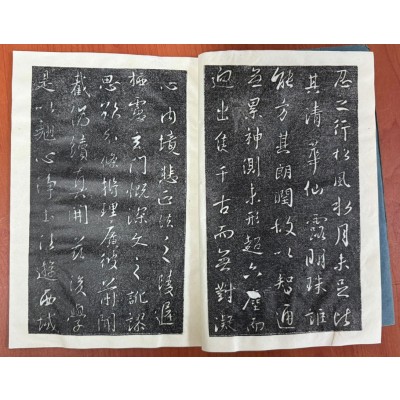 忍之行松風水月未足比
其清華仙露明珠詎
能方其朗潤故以智通
無累神測未形超六塵而
迥出隻千古而無對凝
心內境悲正法之陵遲
栖慮玄門慨深文之訛謬
思欲分條析理廣彼前聞
截偽續真開茲後學
是以翹心淨土法遊西域